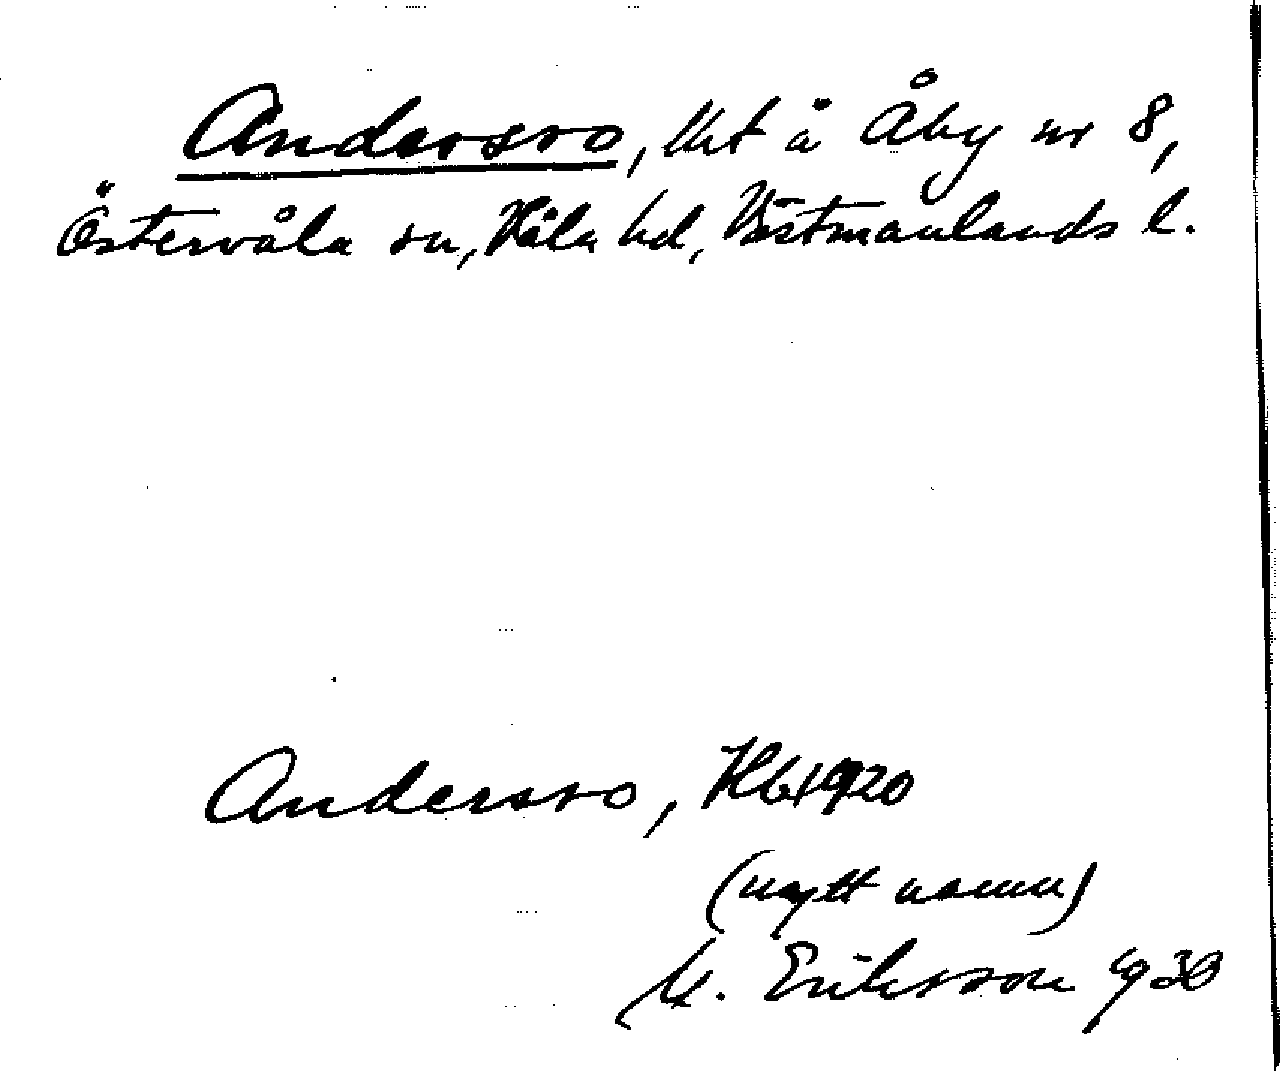 Andersro, lht å Åby nr 8,
Östervåla sn, Våla hd, Västmanlands l.
Andersro, Hb 1920
(nytt namn)
M. Eriksson 1930